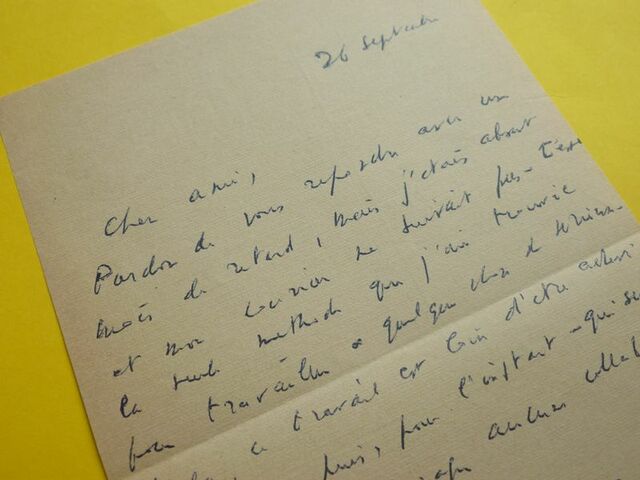 26 septembre
Cher ami,
Pardon de vous répondre avec un
mois de retard, mais j'étais absent
et mon courrier ne suivait pas – C'est
la seule méthode que j'ai trouvée
pour travailler à quelque chose de
ce travail est loin d'être achevé
suis, pour l'instant – qui
aucune